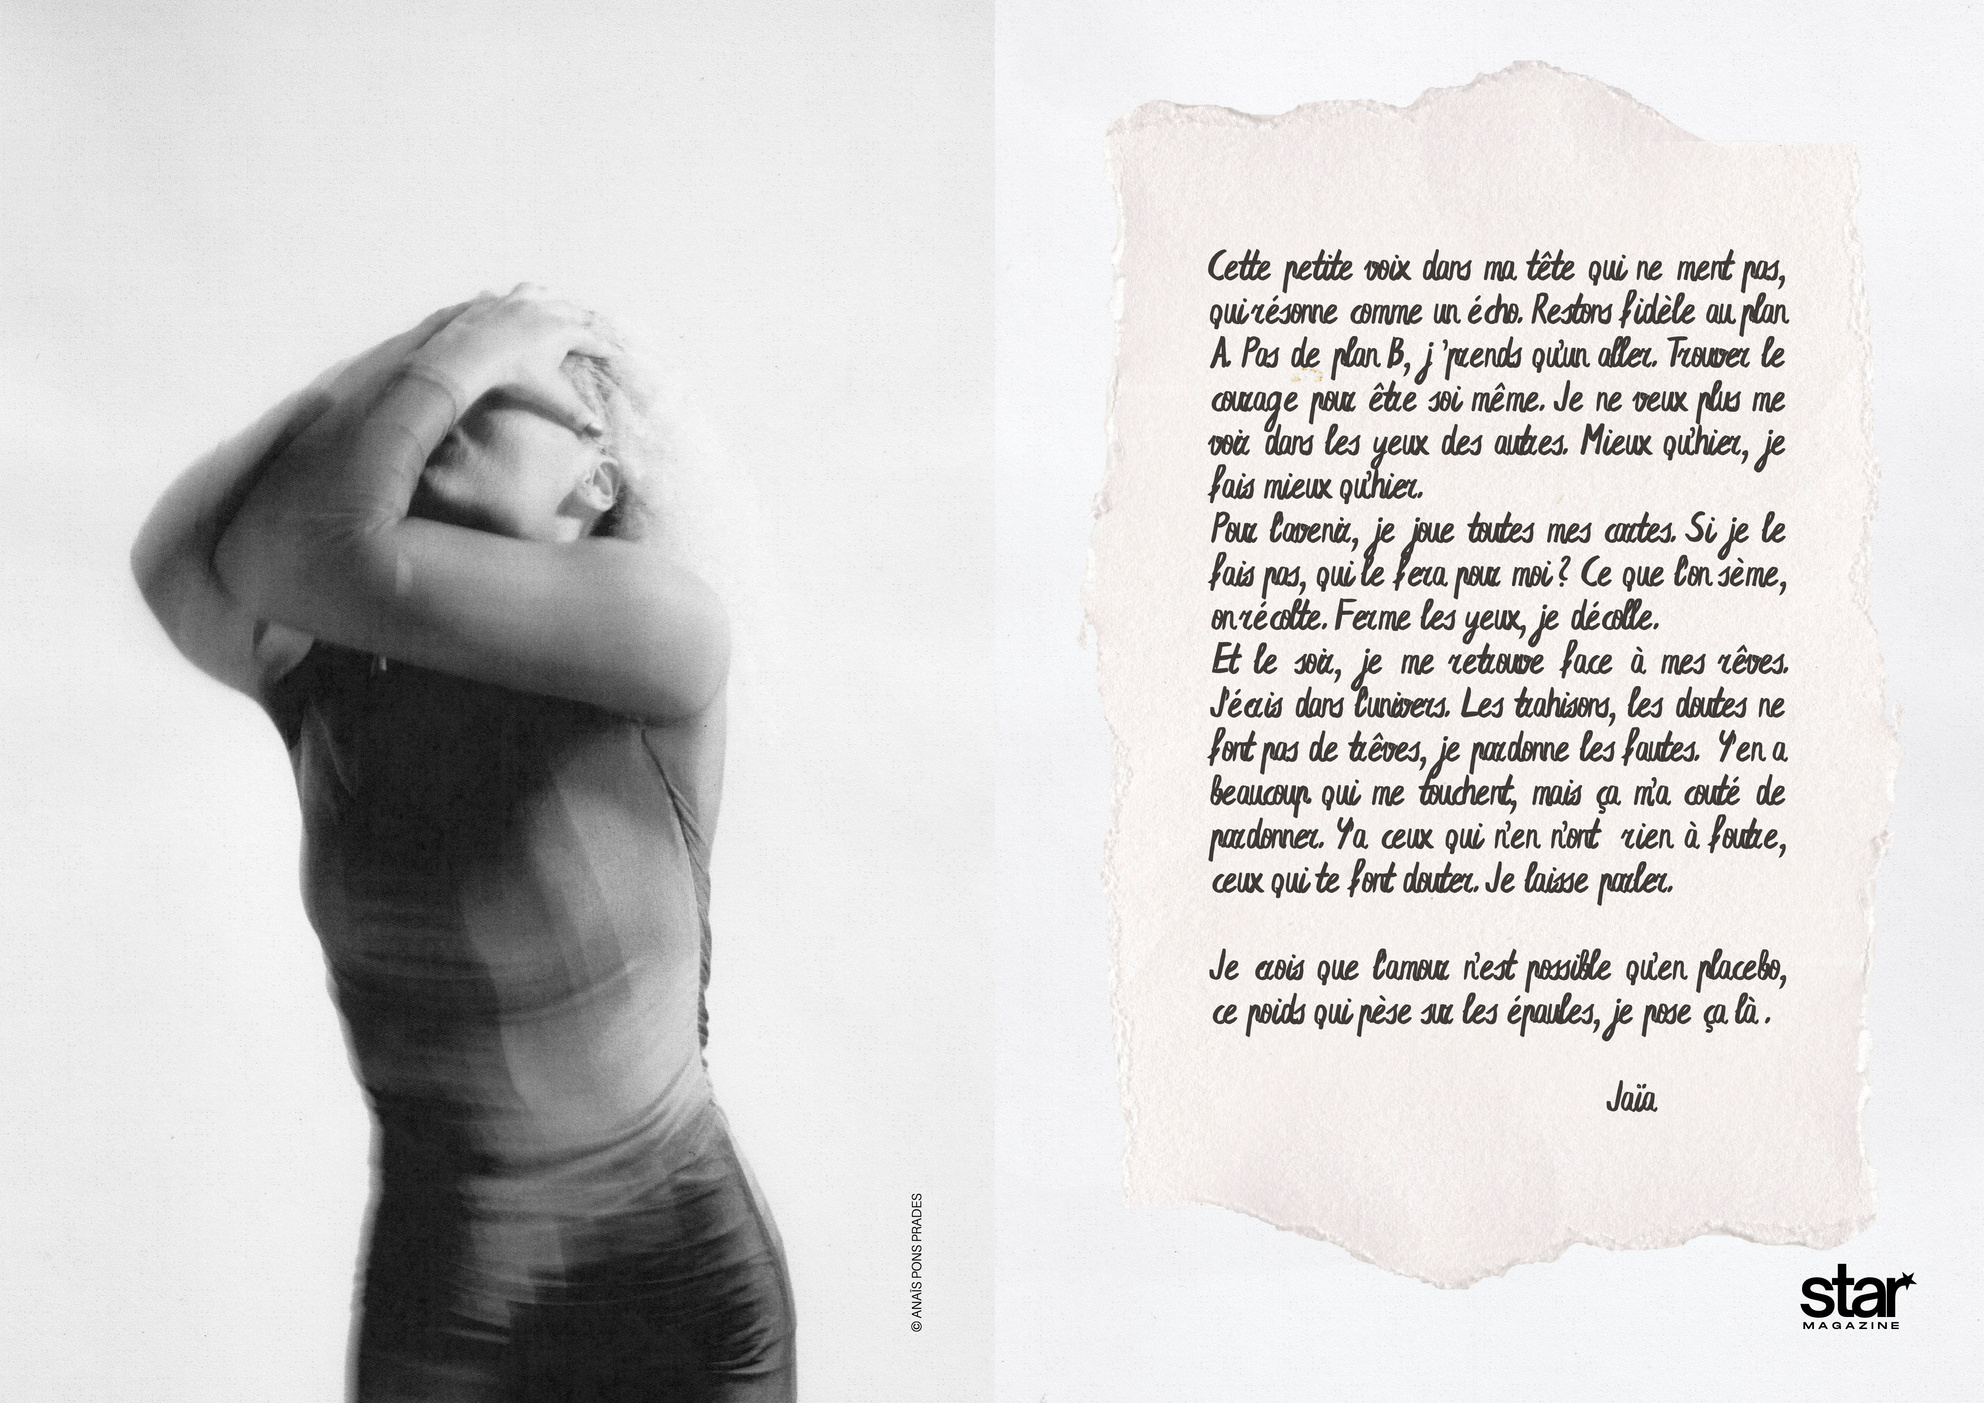 © ANAÏS PONS PRADES
Cette petite voix dans ma tête qui ne ment pas,
qui résonne comme un écho. Restons fidèle au plan
A. Pas de plan B, j'prends qu'un aller. Trouver le
courage pour être soi même. Je ne veux plus me
voir dans les yeux des autres. Mieux qu'hier, je
fais mieux qu'hier.
Pour l'avenir, je joue toutes mes cartes. Si je le
fais pas, qui le fera pour moi ? Ce que l'on sème,
on récolte. Ferme les yeux, je décolle.
Et le soir, je me retrouve face à mes rêves.
J'écris dans l'univers. Les trahisons, les doutes ne
font pas de trêves, je pardonne les fautes. Y'en a
beaucoup qui me touchent, mais ça m'a couté de
pardonner. Y'a ceux qui n'en n'ont rien à foutre,
ceux qui te font douter. Je laisse parler.
Je crois que l'amour n'est possible qu'en placebo,
ce poids qui pèse sur les épaules, je pose ça là .
Jaïa
star
MAGAZINE